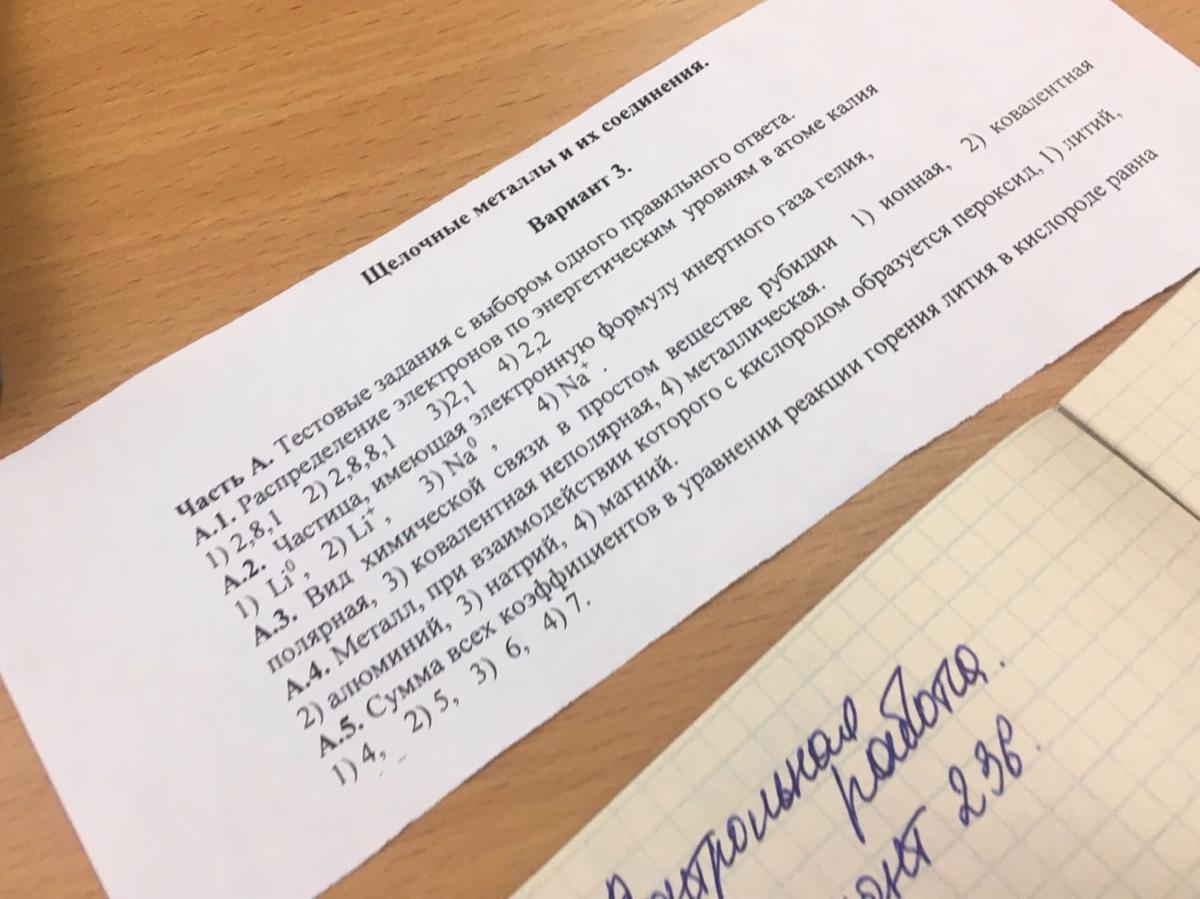 Щелочные металлы и их соединения.
Вариант 3.
Часть А. Тестовые задания с выбором одного правильного ответа.
А.1. Распределение электронов по энергетическим уровням в атоме калия
1) 2,8,1 2) 2,8,8,1 3)2,1 4) 2,2
А.2. Частица, имеющая электронную формулу инертного газа гелия,
1) Li⁰ , 2) Li⁺ , 3) Na⁰ , 4) Na⁺ .
А.3. Вид химической связи в простом веществе рубидии 1) ионная, 2) ковалентная
полярная, 3) ковалентная неполярная, 4) металлическая.
А.4. Металл, при взаимодействии которого с кислородом образуется пероксид, 1) литий,
2) алюминий, 3) натрий, 4) магний.
А.5. Сумма всех коэффициентов в уравнении реакции горения лития в кислороде равна
1) 4, 2) 5, 3) 6, 4) 7.
Контрольная
работа.